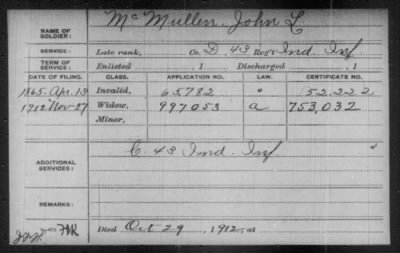 NAME OF SOLDIER: McMullen, John L
SERVICE: Late rank, Co. D 43 Reg't Ind. Inf
TERM OF SERVICE: Enlisted , 1 Discharged , 1
DATE OF FILING. CLASS. APPLICATION NO. LAW. CERTIFICATE NO.
1865 Apr. 13 Invalid, 65782 " 52.222
1912 Nov-27 Widow, 997053 a 753,032
Minor,
ADDITIONAL SERVICES: C. 43 Ind. Inf.
REMARKS:
Died Oct 29, 1912, at